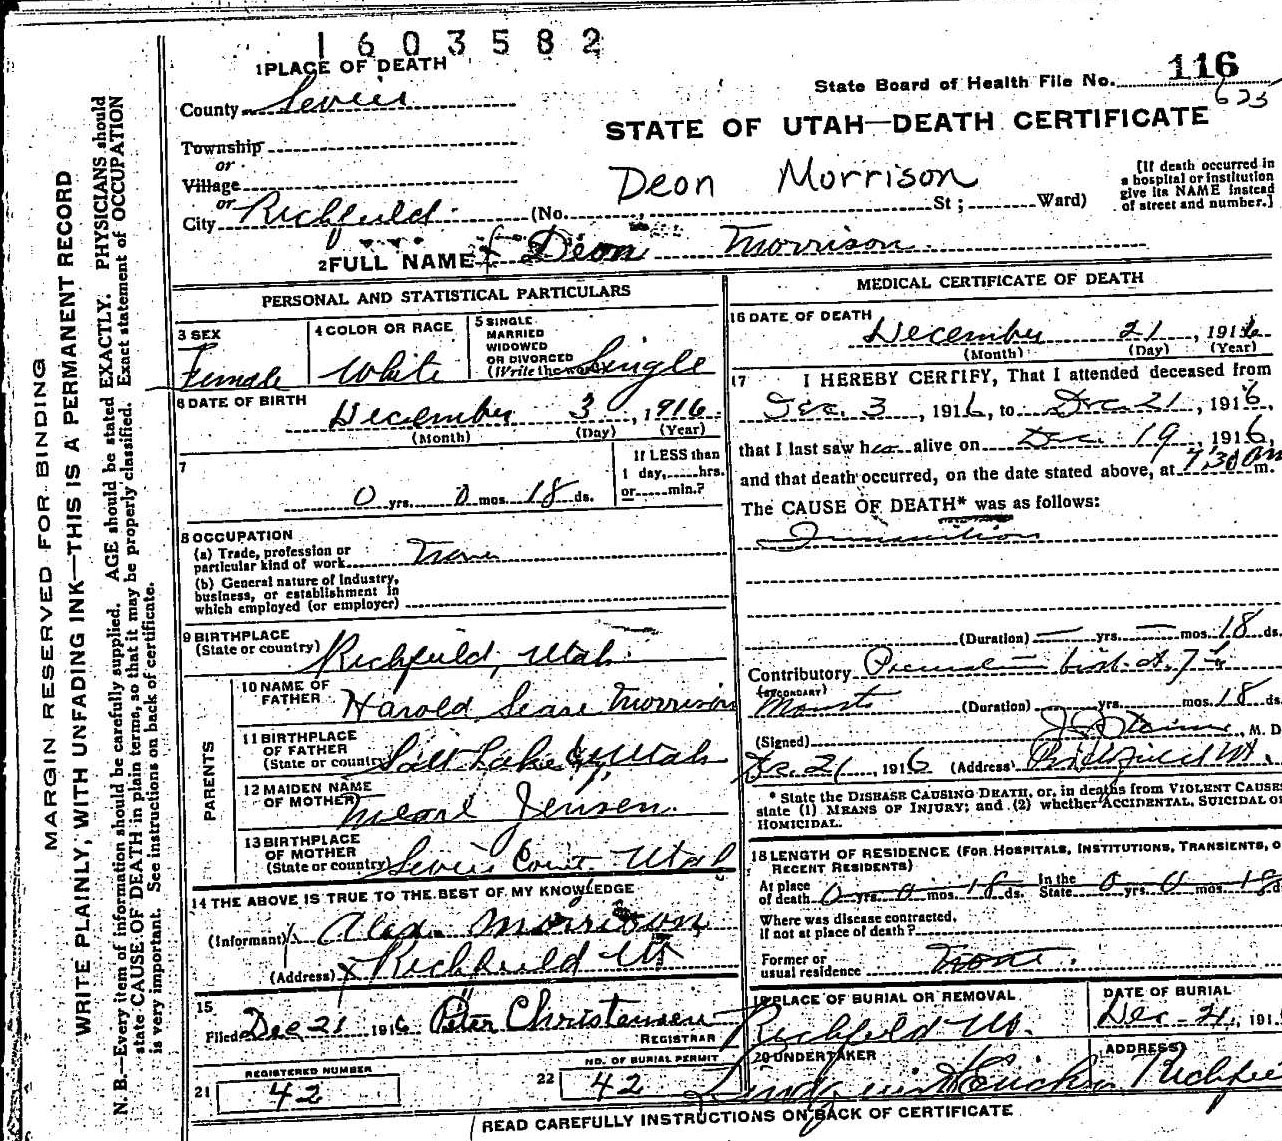 1603582
1 PLACE OF DEATH
State Board of Health File No. 116
625
County Sevier
STATE OF UTAH—DEATH CERTIFICATE
Township
or
Village
or
City Richfield (No. St; Ward)
Deon Morrison
[If death occurred in
a hospital or institution
give its NAME instead
of street and number.]
2 FULL NAME Deon Morrison
PERSONAL AND STATISTICAL PARTICULARS
3 SEX
Female
4 COLOR OR RACE
White
5 SINGLE
MARRIED
WIDOWED
OR DIVORCED
(Write the word) Single
6 DATE OF BIRTH
December 3, 1916
(Month) (Day) (Year)
7
0 yrs. 0 mos. 18 ds.
If LESS than
1 day, hrs.
or min.?
8 OCCUPATION
(a) Trade, profession or
particular kind of work None
(b) General nature of Industry,
business, or establishment in
which employed (or employer)
9 BIRTHPLACE
(State or country) Richfield, Utah.
PARENTS
10 NAME OF
FATHER Harold Morrison
11 BIRTHPLACE
OF FATHER
(State or country) Salt Lake Cy, Utah
12 MAIDEN NAME
OF MOTHER Jensen.
13 BIRTHPLACE
OF MOTHER
(State or country) Sevier Count, Utah
14 THE ABOVE IS TRUE TO THE BEST OF MY KNOWLEDGE
(Informant) Alex. Morrison
(Address) Richfield Ut
15
Filed Dec 21 1916 Peter Christensen
REGISTRAR
21
REGISTERED NUMBER
42
22
NO. OF BURIAL PERMIT
42
MEDICAL CERTIFICATE OF DEATH
16 DATE OF DEATH
December 21, 1916
(Month) (Day) (Year)
17 I HEREBY CERTIFY, That I attended deceased from
Dec. 3, 1916, to Dec. 21, 1916,
that I last saw her alive on Dec. 19, 1916,
and that death occurred, on the date stated above, at 7:30 m.
The CAUSE OF DEATH* was as follows:
Inanition
(Duration) — yrs. — mos. 18 ds.
Contributory birth at 7½
(SECONDARY)
Months (Duration) yrs. mos. 18 ds.
(Signed) M. D
Dec. 21, 1916 (Address) Richfield Ut.
* State the DISEASE CAUSING DEATH, or, in deaths from VIOLENT CAUSES
state (1) MEANS OF INJURY; and (2) whether ACCIDENTAL, SUICIDAL OR
HOMICIDAL.
18 LENGTH OF RESIDENCE (FOR HOSPITALS, INSTITUTIONS, TRANSIENTS, O
RECENT RESIDENTS)
At place
of death 0 yrs. 0 mos. 18 ds. In the
State 0 yrs. 0 mos. 18 ds
Where was disease contracted,
If not at place of death?
Former or
usual residence
19 PLACE OF BURIAL OR REMOVAL
Richfield Ut.
DATE OF BURIAL
Dec 21, 191
20 UNDERTAKER
ADDRESS
Richfie
READ CAREFULLY INSTRUCTIONS ON BACK OF CERTIFICATE
MARGIN RESERVED FOR BINDING
WRITE PLAINLY, WITH UNFADING INK—THIS IS A PERMANENT RECORD
N. B.—Every item of information should be carefully supplied. AGE should be stated EXACTLY. PHYSICIANS should
state CAUSE OF DEATH in plain terms, so that it may be properly classified. Exact statement of OCCUPATION
is very important. See instructions on back of certificate.